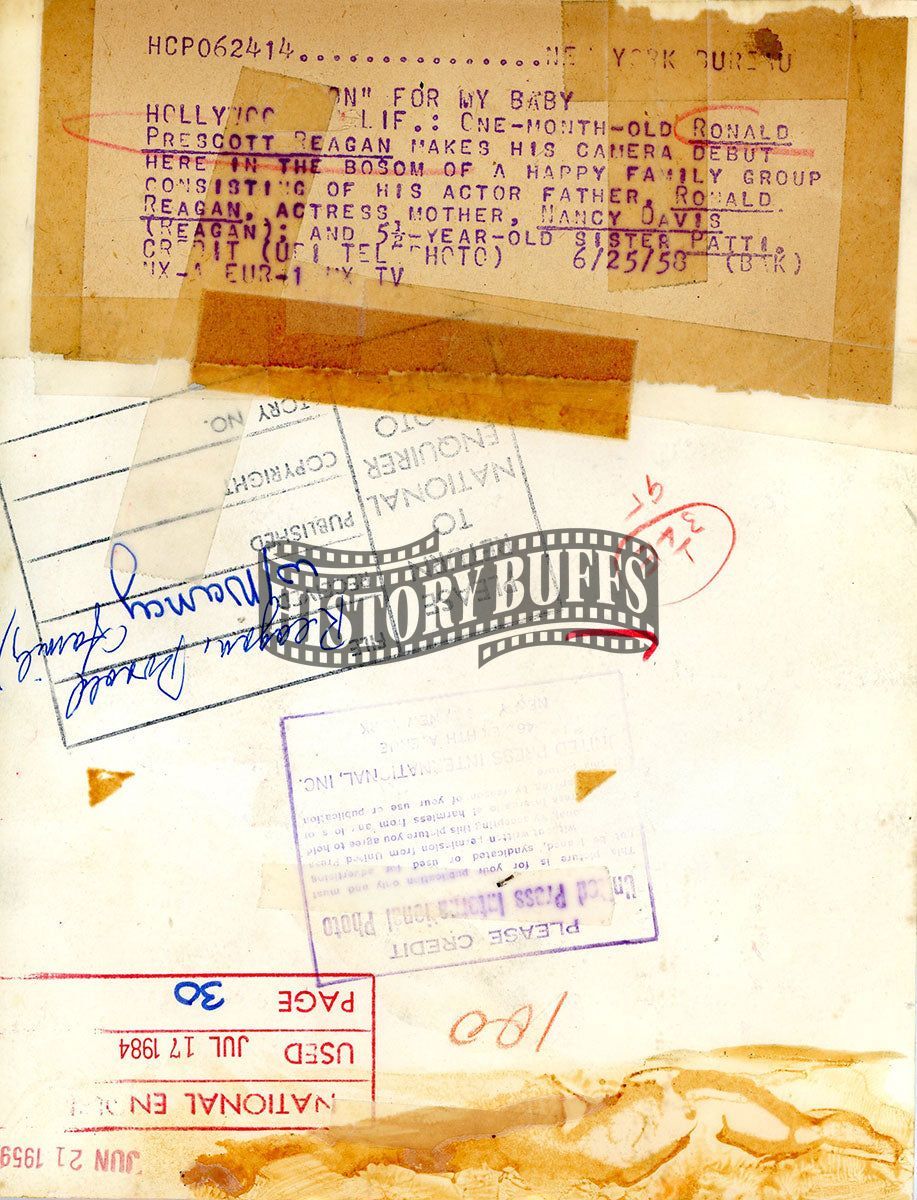 HCP062414...............NEW YORK BUREAU
ON" FOR MY BABY
HOLLYWOO LIF.: ONE-MONTH-OLD RONALD
PRESCOTT REAGAN MAKES HIS CAMERA DEBUT
HERE IN THE BOSOM OF A HAPPY FAMILY GROUP
CONSISTING OF HIS ACTOR FATHER, RONALD
REAGAN, ACTRESS MOTHER, NANCY DAVIS
(REAGAN); AND 5½-YEAR-OLD SISTER PATTI.
CREDIT (UPI TELEPHOTO) 6/25/58 (BAK)
EUR-1 TV
FILE
Reagan, Ronald
(family)
w/Nancy
PUBLISHED
COPYRIGHT
STORY NO.
PLEASE
RETURN
TO
NATIONAL
ENQUIRER
PHOTO
HISTORY BUFFS
PLEASE CREDIT
United Press International Photo
This picture is for your publication only and must
not be loaned, syndicated or used for advertising
without written permission from United Press
by accepting this picture you agree to hold
harmless from any loss or
by reason of your use or publication
UNITED PRESS INTERNATIONAL, INC.
NEW YORK
180
NATIONAL EN
USED JUL 17 1984
PAGE 30
JUN 21 1959